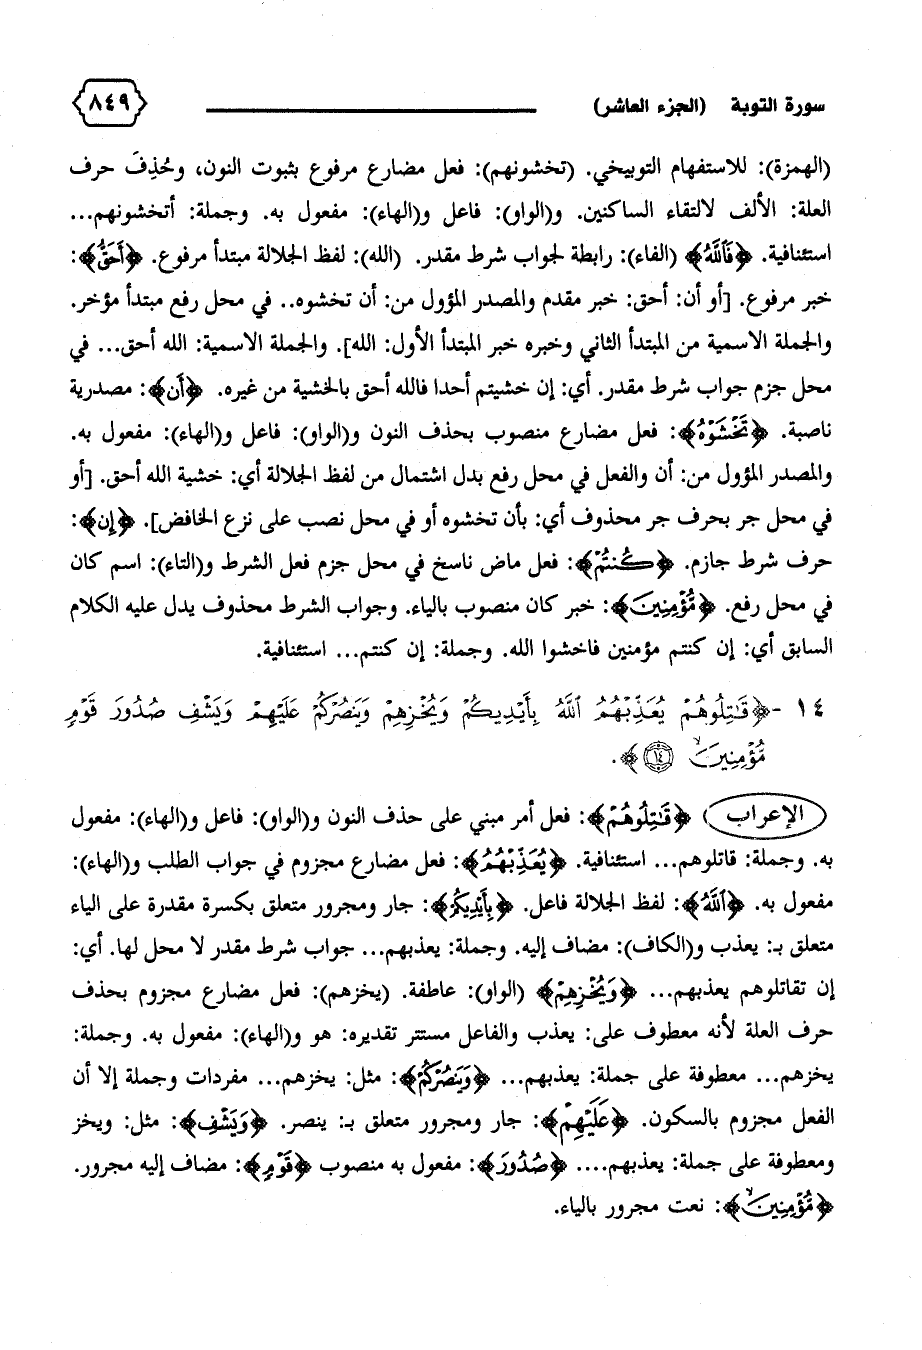 سورة التوبة (الجزء العاشر) ٨٤٩
(الهمزة): للاستفهام التوبيخي. (تخشونهم): فعل مضارع مرفوع بثبوت النون، وحُذِفَ حرف
العلة: الألف لالتقاء الساكنين. و(الواو): فاعل و(الهاء): مفعول به. وجملة: أتخشونهم...
استئنافية. ﴿فَاللَّهُ﴾ (الفاء): رابطة لجواب شرط مقدر. (الله): لفظ الجلالة مبتدأ مرفوع. ﴿أَحَقُّ﴾:
خبر مرفوع. [أو أن: أحق: خبر مقدم والمصدر المؤول من: أن تخشوه.. في محل رفع مبتدأ مؤخر.
والجملة الاسمية من المبتدأ الثاني وخبره خبر المبتدأ الأول: الله]. والجملة الاسمية: الله أحق... في
محل جزم جواب شرط مقدر. أي: إن خشيتم أحدا فالله أحق بالخشية من غيره. ﴿أَن﴾: مصدرية
ناصبة. ﴿تَخْشَوْهُ﴾: فعل مضارع منصوب بحذف النون و(الواو): فاعل و(الهاء): مفعول به.
والمصدر المؤول من: أن والفعل في محل رفع بدل اشتمال من لفظ الجلالة أي: خشية الله أحق. [أو
في محل جر بحرف جر محذوف أي: بأن تخشوه أو في محل نصب على نزع الخافض]. ﴿إِن﴾:
حرف شرط جازم. ﴿كُنتُم﴾: فعل ماض ناسخ في محل جزم فعل الشرط و(التاء): اسم كان
في محل رفع. ﴿مُّؤْمِنِينَ﴾: خبر كان منصوب بالياء. وجواب الشرط محذوف يدل عليه الكلام
السابق أي: إن كنتم مؤمنين فاخشوا الله. وجملة: إن كنتم... استئنافية.
١٤ - ﴿قَاتِلُوهُمْ يُعَذِّبْهُمُ اللَّهُ بِأَيْدِيكُمْ وَيُخْزِهِمْ وَيَنصُرْكُمْ عَلَيْهِمْ وَيَشْفِ صُدُورَ قَوْمٍ
مُّؤْمِنِينَ ۙ ﴿١٤﴾﴾.
الإعراب ﴿قَاتِلُوهُمْ﴾: فعل أمر مبني على حذف النون و(الواو): فاعل و(الهاء): مفعول
به. وجملة: قاتلوهم... استئنافية. ﴿يُعَذِّبْهُمُ﴾: فعل مضارع مجزوم في جواب الطلب و(الهاء):
مفعول به. ﴿اللَّهُ﴾: لفظ الجلالة فاعل. ﴿بِأَيْدِيكُمْ﴾: جار ومجرور متعلق بكسرة مقدرة على الياء
متعلق بـ: يعذب و(الكاف): مضاف إليه. وجملة: يعذبهم... جواب شرط مقدر لا محل لها. أي:
إن تقاتلوهم يعذبهم... ﴿وَيُخْزِهِمْ﴾ (الواو): عاطفة. (يخزهم): فعل مضارع مجزوم بحذف
حرف العلة لأنه معطوف على: يعذب والفاعل مستتر تقديره: هو و(الهاء): مفعول به. وجملة:
يخزهم... معطوفة على جملة: يعذبهم... ﴿وَيَنصُرْكُمْ﴾: مثل: يخزهم... مفردات وجملة إلا أن
الفعل مجزوم بالسكون. ﴿عَلَيْهِمْ﴾: جار ومجرور متعلق بـ: ينصر. ﴿وَيَشْفِ﴾: مثل: ويخز
ومعطوفة على جملة: يعذبهم.... ﴿صُدُورَ﴾: مفعول به منصوب ﴿قَوْمٍ﴾: مضاف إليه مجرور.
﴿مُّؤْمِنِينَ ۙ﴾: نعت مجرور بالياء.